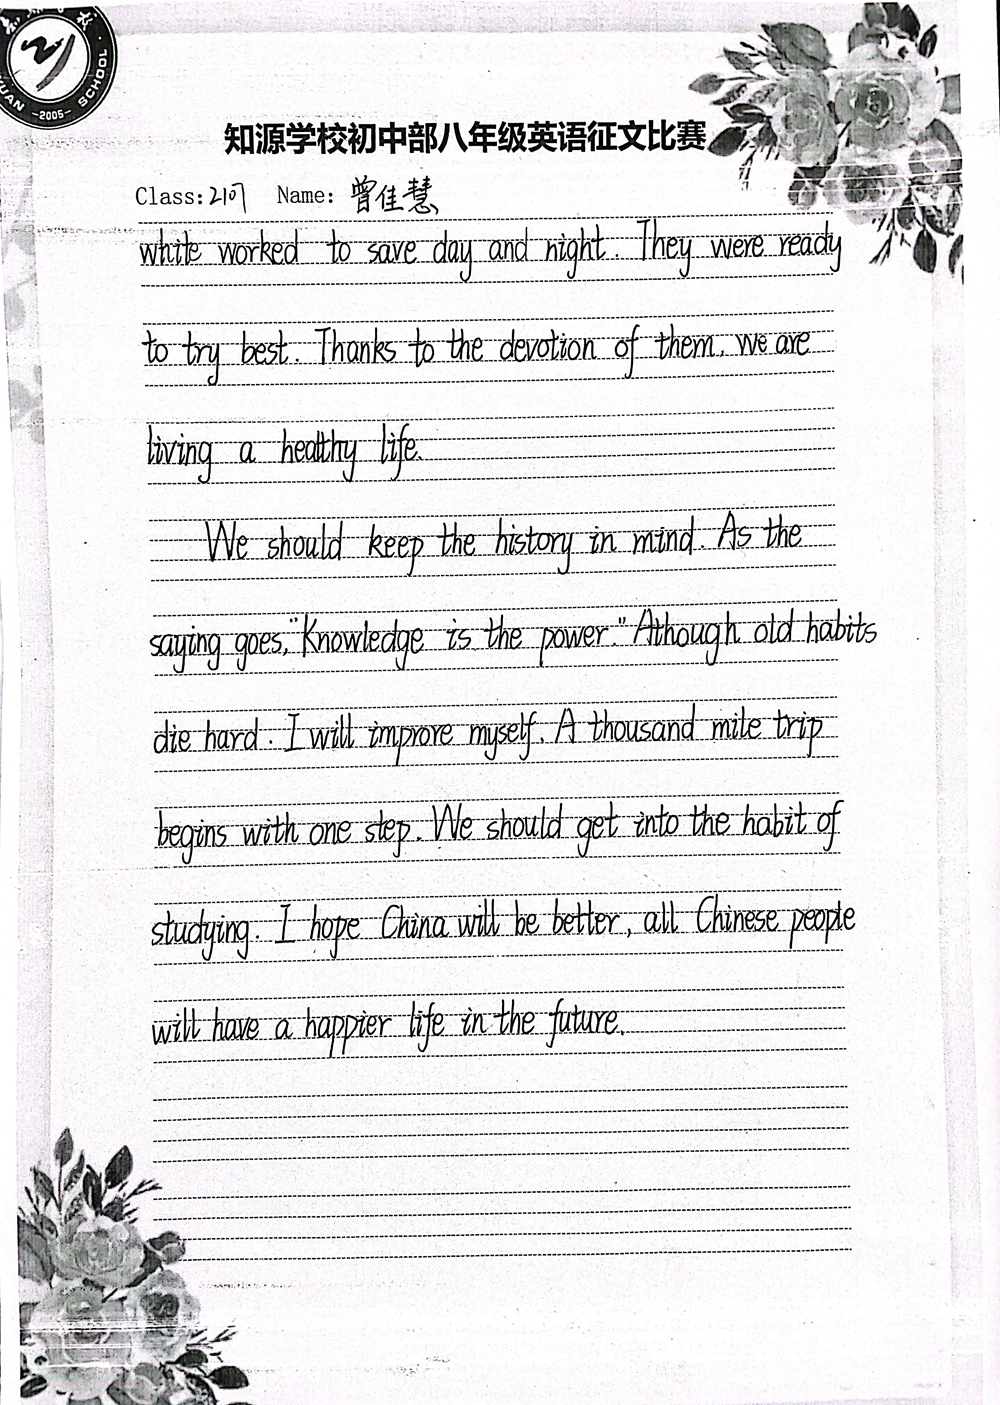 YUAN -2005- SCHOOL
知源学校初中部八年级英语征文比赛
Class: 2107 Name: 曾佳慧
white worked to save day and night. They were ready
to try best. Thanks to the devotion of them, we are
living a healthy life.
We should keep the history in mind. As the
saying goes, "Knowledge is the power." Athough old habits
die hard. I will improve myself. A thousand mile trip
begins with one step. We should get into the habit of
studying. I hope China will be better, all Chinese people
will have a happier life in the future.